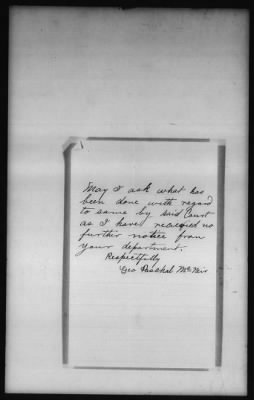 May I ask what has
been done with regard
to same by said Court
as I have recieved no
further notice from
your department.
Respectfully
Geo Paschal McNeir